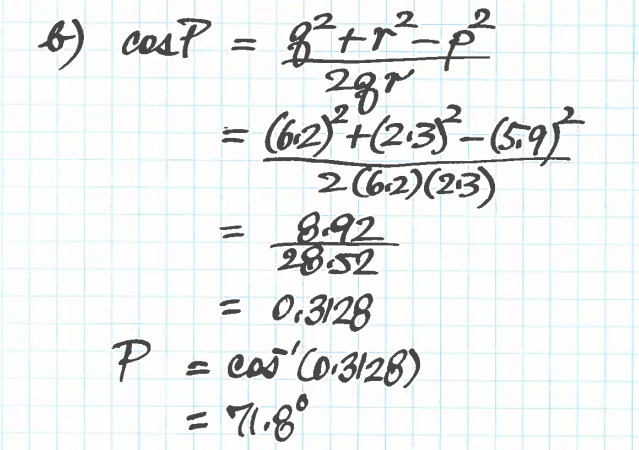 b) cosP = q² + r² - p²
2qr
= (6.2)² + (2.3)² - (5.9)²
2(6.2)(2.3)
= 8.92
28.52
= 0.3128
P = cos⁻¹(0.3128)
= 71.8°